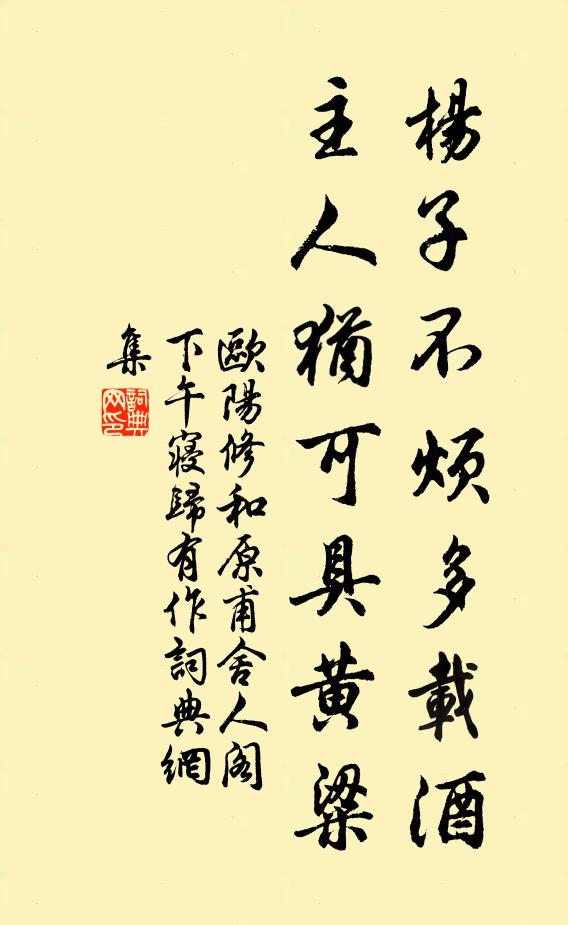 楊子不煩多載酒
主人猶可具黄粱
歐陽修和原甫舍人閣
下午寝歸有作詞典網
集
詞典
网印